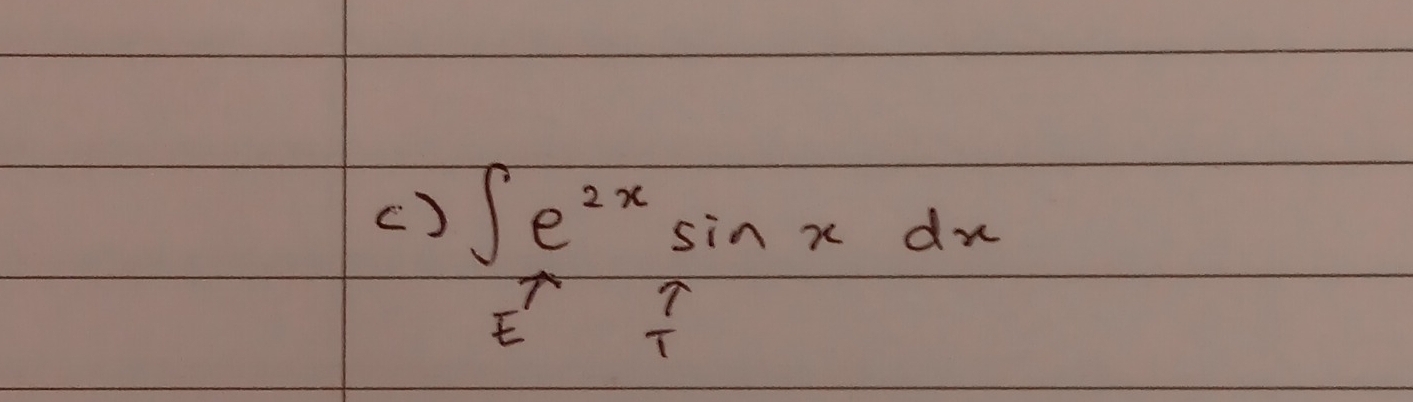 c) ∫ e^{2x} sin x dx
↑ ↑
E T